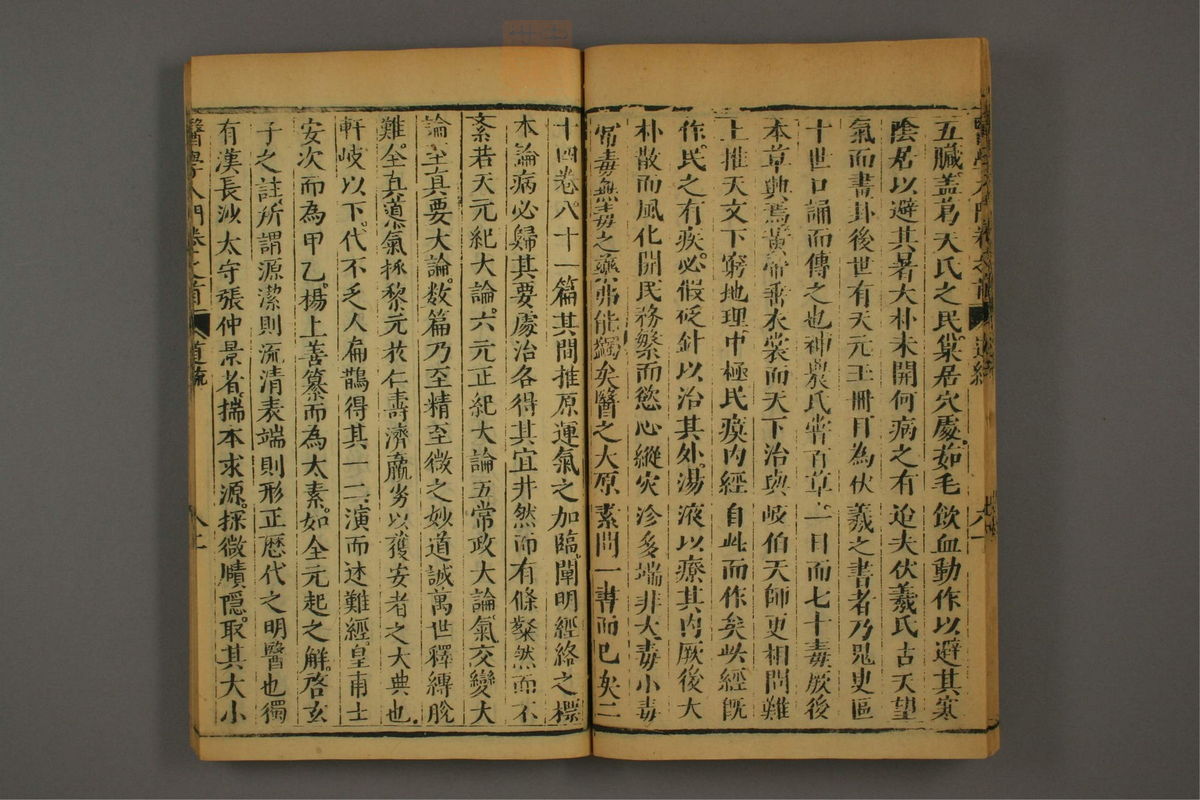 五臟蓋葛天氏之民巢居穴處茹毛飲血動作以避其寒
陰居以避其暑大朴未開何病之有迨夫伏羲氏占天望
氣而畫卦後世有天元玉冊目為伏羲之書者乃鬼臾區
十世口誦而傳之也神農氏嘗百草一日而七十毒厥後
本草典焉黃帝垂衣裳而天下治與岐伯天師更相問難
上推天文下窮地理中極民瘼內經自此而作矣此經既
作民之有疾必假砭針以治其外湯液以療其內厥後大
朴散而風化開民務繁而慾心縱灾沴多端非大毒小毒
常毒無毒之藥弗能蠲矣醫之大原素問一書而已矣二
十四卷八十一篇其間推原運氣之加臨闡明經絡之標
本論病必歸其要處治各得其宜井然而有條粲然而不
紊若天元紀大論六元正紀大論五常政大論氣交變大
論至真要大論數篇乃至精至微之妙道誠萬世釋縛脫
難全真導氣拯黎元於仁壽濟羸劣以獲安者之大典也
軒岐以下代不乏人扁鵲得其一二演而述難經皇甫士
安次而為甲乙楊上善纂而為太素如全元起之解啓玄
子之註所謂源潔則流清表端則形正歷代之明醫也獨
有漢長沙太守張仲景者揣本求源採微賾隱取其大小
醫學入門卷之首
道統
八二